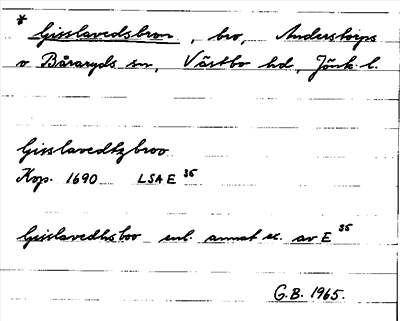 * Gisslavedsbron, bro, Anderstorps
o Båraryds sn, Västbo hd, Jönk. l.
Gisslavedtzbroo
Kop. 1690 LSA E 35
Gisslavedhsboo enl. annat ex. av E 35
G.B. 1965.